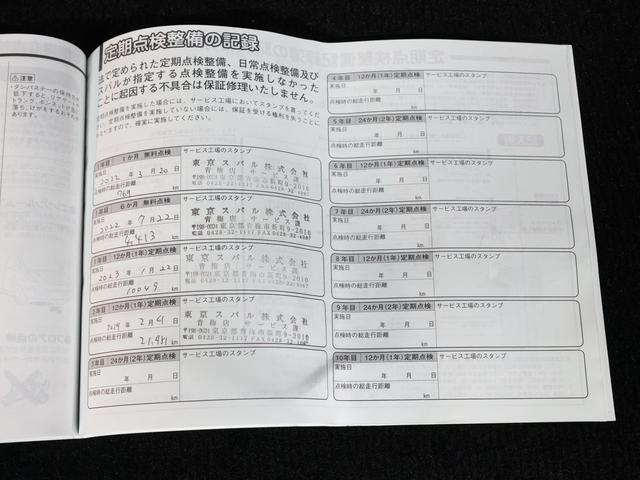 定期点検整備の記録
法で定められた定期点検整備、日常点検整備及び
スバルが指定する点検整備を実施しなかった
ことに起因する不具合は保証修理いたしません。
定期点検整備を実施した場合には、サービス工場においてスタンプを貰ってください。
定期点検整備を実施していない場合には、保証を受ける権利を失うことに
なりますので、確実に実施してください。
⚠注意
1年目 1か月 無料点検 サービス工場のスタンプ
実施日
2022年 3月 20日
点検時の総走行距離
769 km
東京スバル株式会社
青梅店 サービス課
〒198-0024 東京都青梅市新町9-2010
電話 0428-32-1117 FAX 0428-32-4087
1年目 6か月 無料点検 サービス工場のスタンプ
実施日
2022年 7月 22日
点検時の総走行距離
4,413 km
東京スバル株式会社
青梅店 サービス課
〒198-0024 東京都青梅市新町9-2010
電話 0428-32-1117 FAX 0428-32-4087
1年目 12か月(1年)定期点検 サービス工場のスタンプ
実施日
2023年 1月 22日
点検時の総走行距離
10049 km
東京スバル株式会社
青梅店 サービス課
〒198-0024 東京都青梅市新町9-2010
電話 0428-32-1117 FAX 0428-32-4087
2年目 12か月(1年)定期点検 サービス工場のスタンプ
実施日
2月 4日
点検時の総走行距離
21,481 km
東京スバル株式会社
青梅店 サービス課
〒198-0024 東京都青梅市新町9-2010
電話 0428-32-1117 FAX 0428-32-4087
3年目 24か月(2年)定期点検 サービス工場のスタンプ
実施日
年 月 日
点検時の総走行距離
km
4年目 12か月(1年)定期点検 サービス工場のスタンプ
実施日
年 月 日
点検時の総走行距離
km
5年目 24か月(2年)定期点検 サービス工場のスタンプ
実施日
年 月 日
点検時の総走行距離
km
6年目 12か月(1年)定期点検 サービス工場のスタンプ
実施日
年 月 日
点検時の総走行距離
km
7年目 24か月(2年)定期点検 サービス工場のスタンプ
実施日
年 月 日
点検時の総走行距離
km
8年目 12か月(1年)定期点検 サービス工場のスタンプ
実施日
年 月 日
点検時の総走行距離
km
9年目 24か月(2年)定期点検 サービス工場のスタンプ
実施日
年 月 日
点検時の総走行距離
km
10年目 12か月(1年)定期点検 サービス工場のスタンプ
実施日
年 月 日
点検時の総走行距離
km